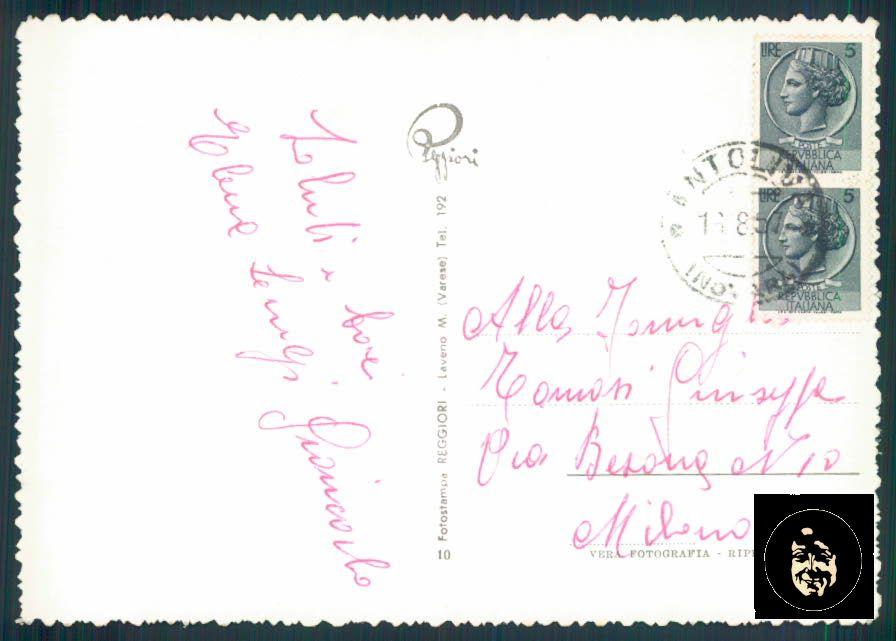 Saluti e baci
Elena Luigi Giancarlo
Reggiori
Fotostampa REGGIORI - Laveno M. (Varese) Tel. 192
10
LIRE 5
POSTE
REPVBBLICA
ITALIANA
LIRE 5
POSTE
REPVBBLICA
ITALIANA
Alla Famiglia
Tomasi Giuseppe
Via Besana N 10
Milano
VERA FOTOGRAFIA - RIP